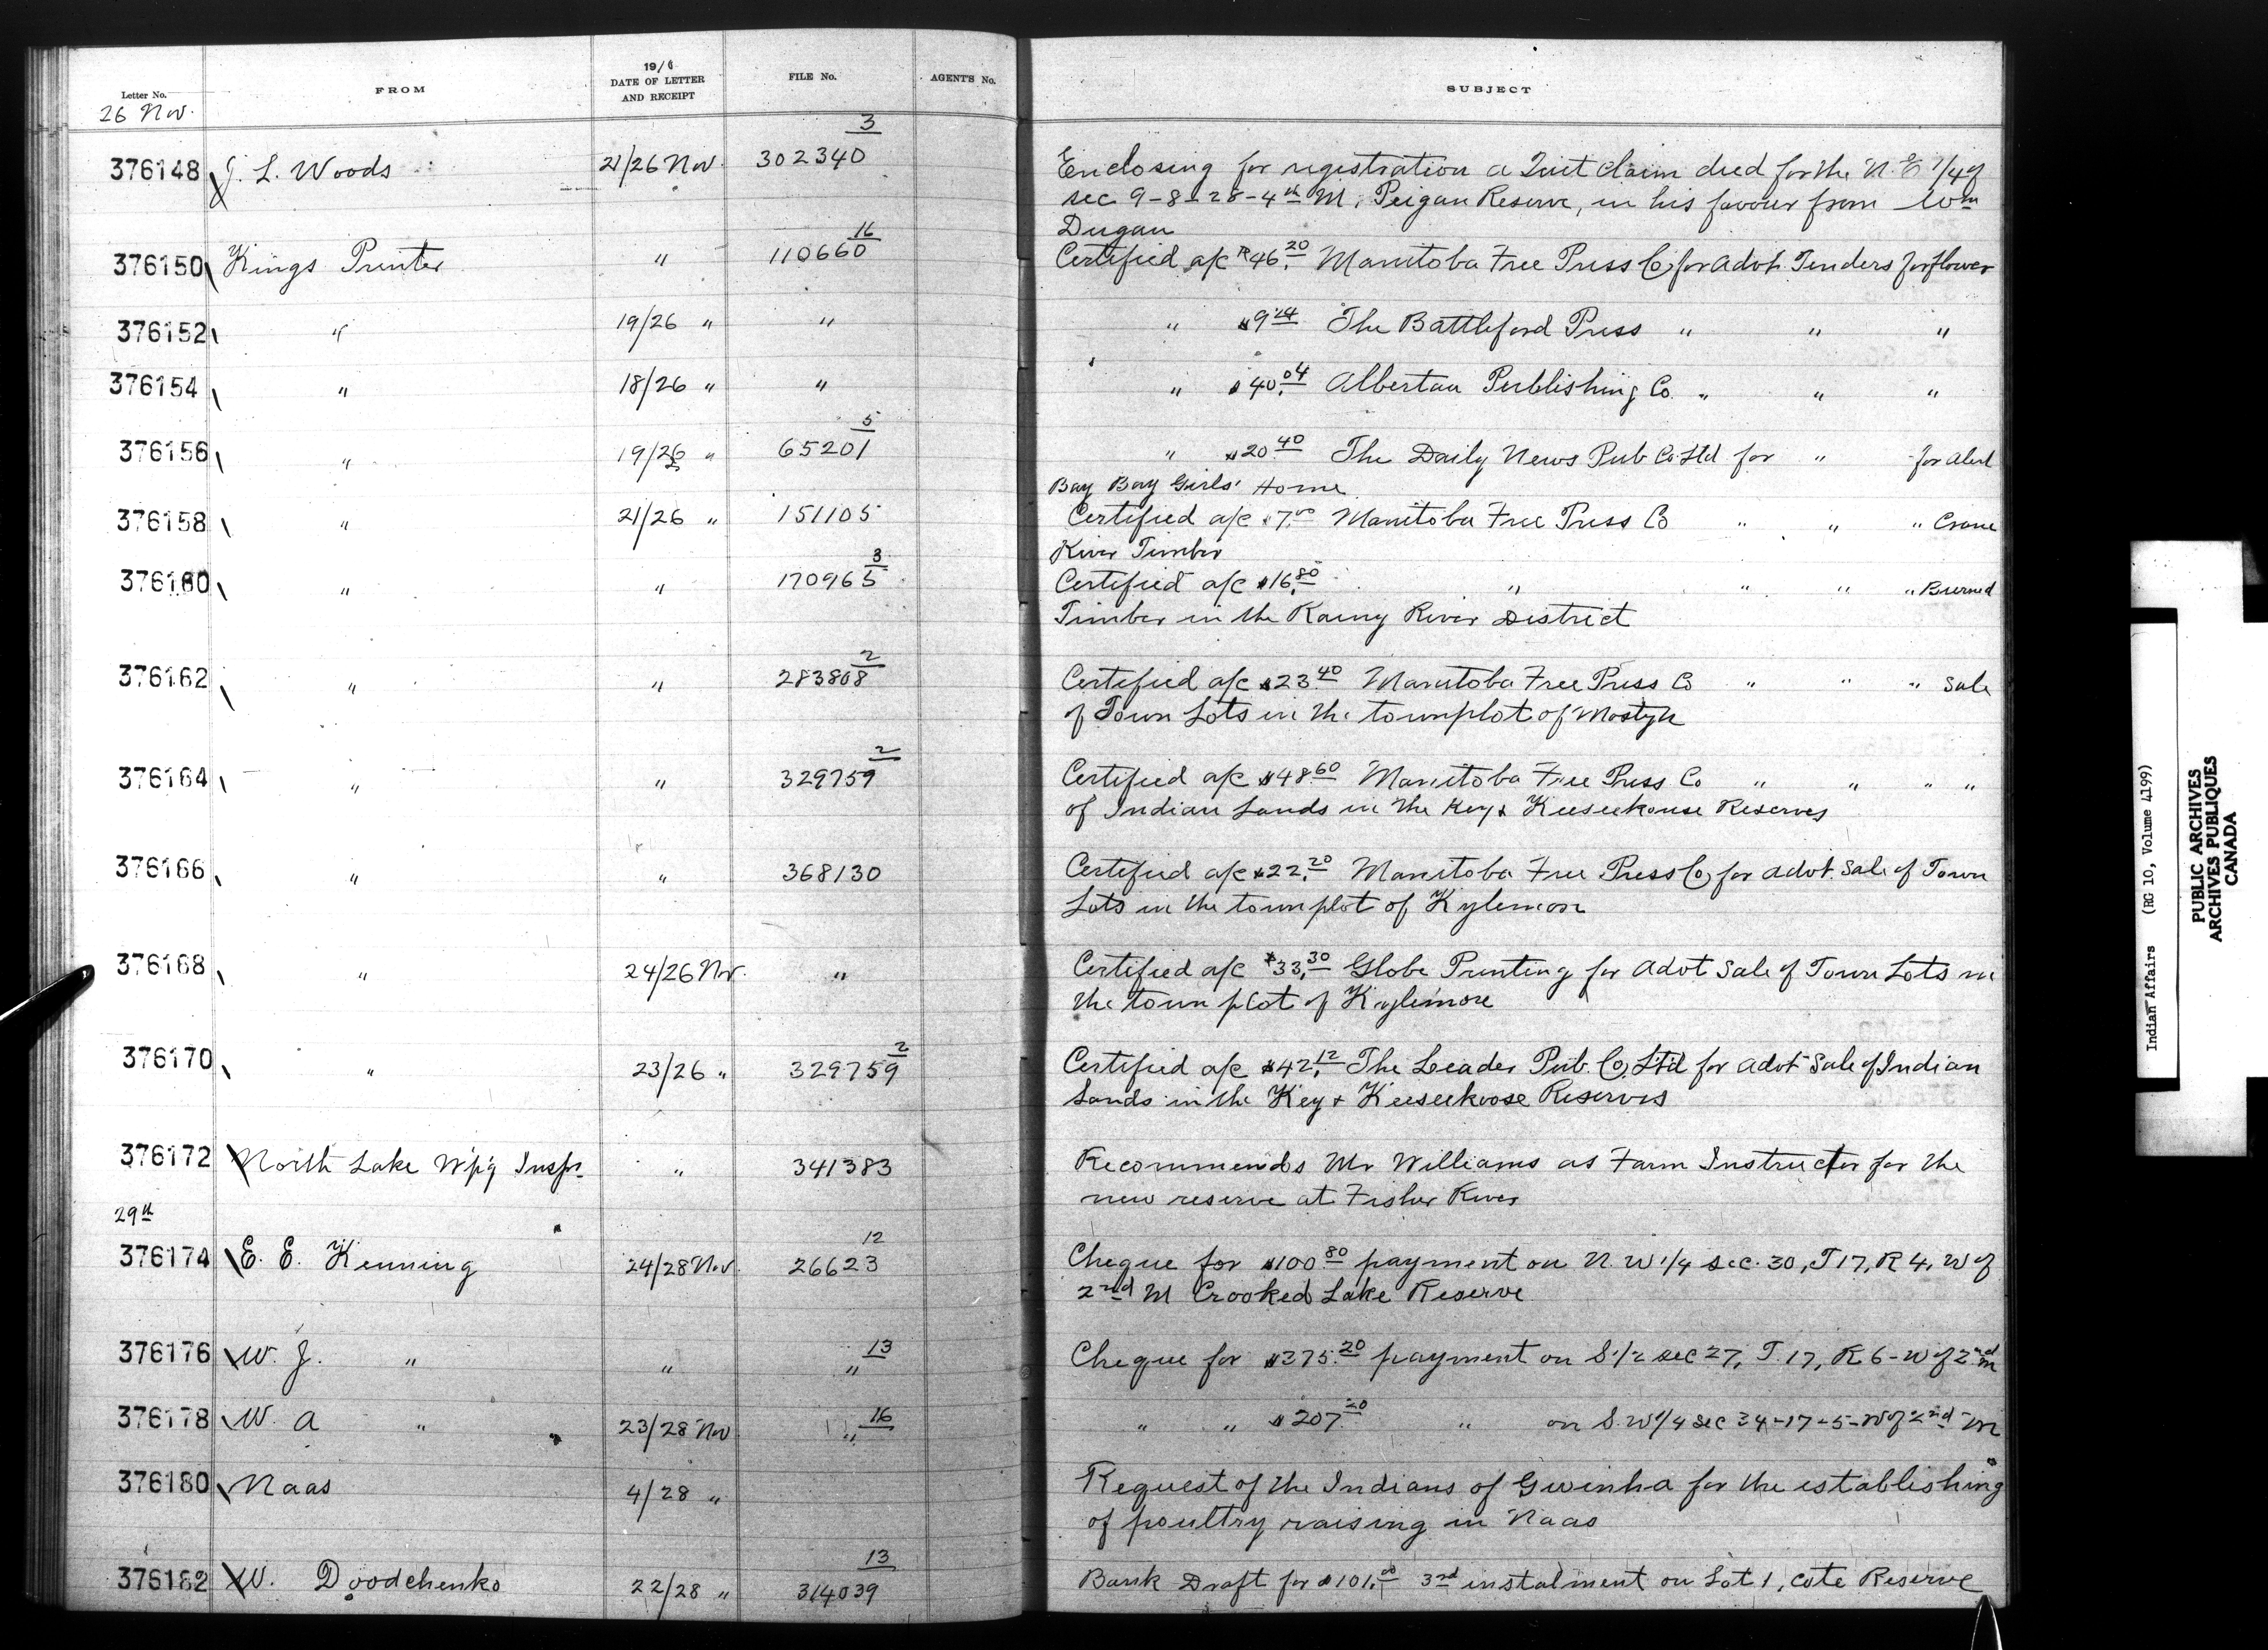 Letter No. FROM 19/ DATE OF LETTER AND RECEIPT FILE No. AGENT'S No. SUBJECT
26 Nov.
376148 J. L. Woods 21/26 Nov. 302340 3 Enclosing for registration a Quit Claim deed for the N.E 1/4 of
sec 9-8-28-4th M, Peigan Reserve, in his favour from Wm
Dugan
376150 Kings Printer " 110660 16 Certified a/c $46.20 Manitoba Free Press Co for Advt. Tenders for flower
376152 " 19/26 " " " $9.24 The Battleford Press " " "
376154 " 18/26 " " " $40.04 Albertan Publishing Co. " " "
376156 " 19/26 " 65201 5 " $20.40 The Daily News Pub Co Ltd for " for Alert
Bay Bay Girls' Home
376158 " 21/26 " 151105 Certified a/c $7.00 Manitoba Free Press Co " " " Crane
River Timber
376160 " " 170965 3 Certified a/c $16.80 " " " " Burned
Timber in the Rainy River District
376162 " " 283808 2 Certified a/c $23.40 Manitoba Free Press Co " " " Sale
of Town Lots in the townplot of Mostyn
376164 " " 329759 2 Certified a/c $48.60 Manitoba Free Press Co " " " "
of Indian Lands in the Key & Keeseekouse Reserves
376166 " " 368130 Certified a/c $22.20 Manitoba Free Press Co, for advt. Sale of Town
Lots in the townplot of Kylemore
376168 " 24/26 Nov. " Certified a/c $33.30 Globe Printing for Advt Sale of Town Lots in
the town plot of Kylemore
376170 " 23/26 " 329759 2 Certified a/c $42.12 The Leader Pub. Co. Ltd for advt Sale of Indian
Lands in the Key & Keeseekoose Reserves
376172 North Lake Wpg Inspr. " 341383 Recommends Mr Williams as Farm Instructor for the
new reserve at Fisher River
29th
376174 E. E. Kenning 24/28 Nov. 26623 12 Cheque for $100.80 payment on N.W 1/4 sec. 30, T 17, R 4, W of
2nd M Crooked Lake Reserve
376176 W. J. " " " 13 Cheque for $375.20 payment on S. 1/2 sec 27, T. 17, R 6 - W of 2nd M
376178 W. A " 23/28 Nov " 16 " " $207.20 " on S.W 1/4 sec 34-17-5-W of 2nd M
376180 Naas 4/28 " Request of the Indians of Gwinha for the establishing
of poultry raising in Naas
376182 W. Doodchenko 22/28 " 314039 13 Bank Draft for $101.00 3rd instalment on Lot 1, Cote Reserve
Indian Affairs (RG 10, Volume 4199)
PUBLIC ARCHIVES
ARCHIVES PUBLIQUES
CANADA